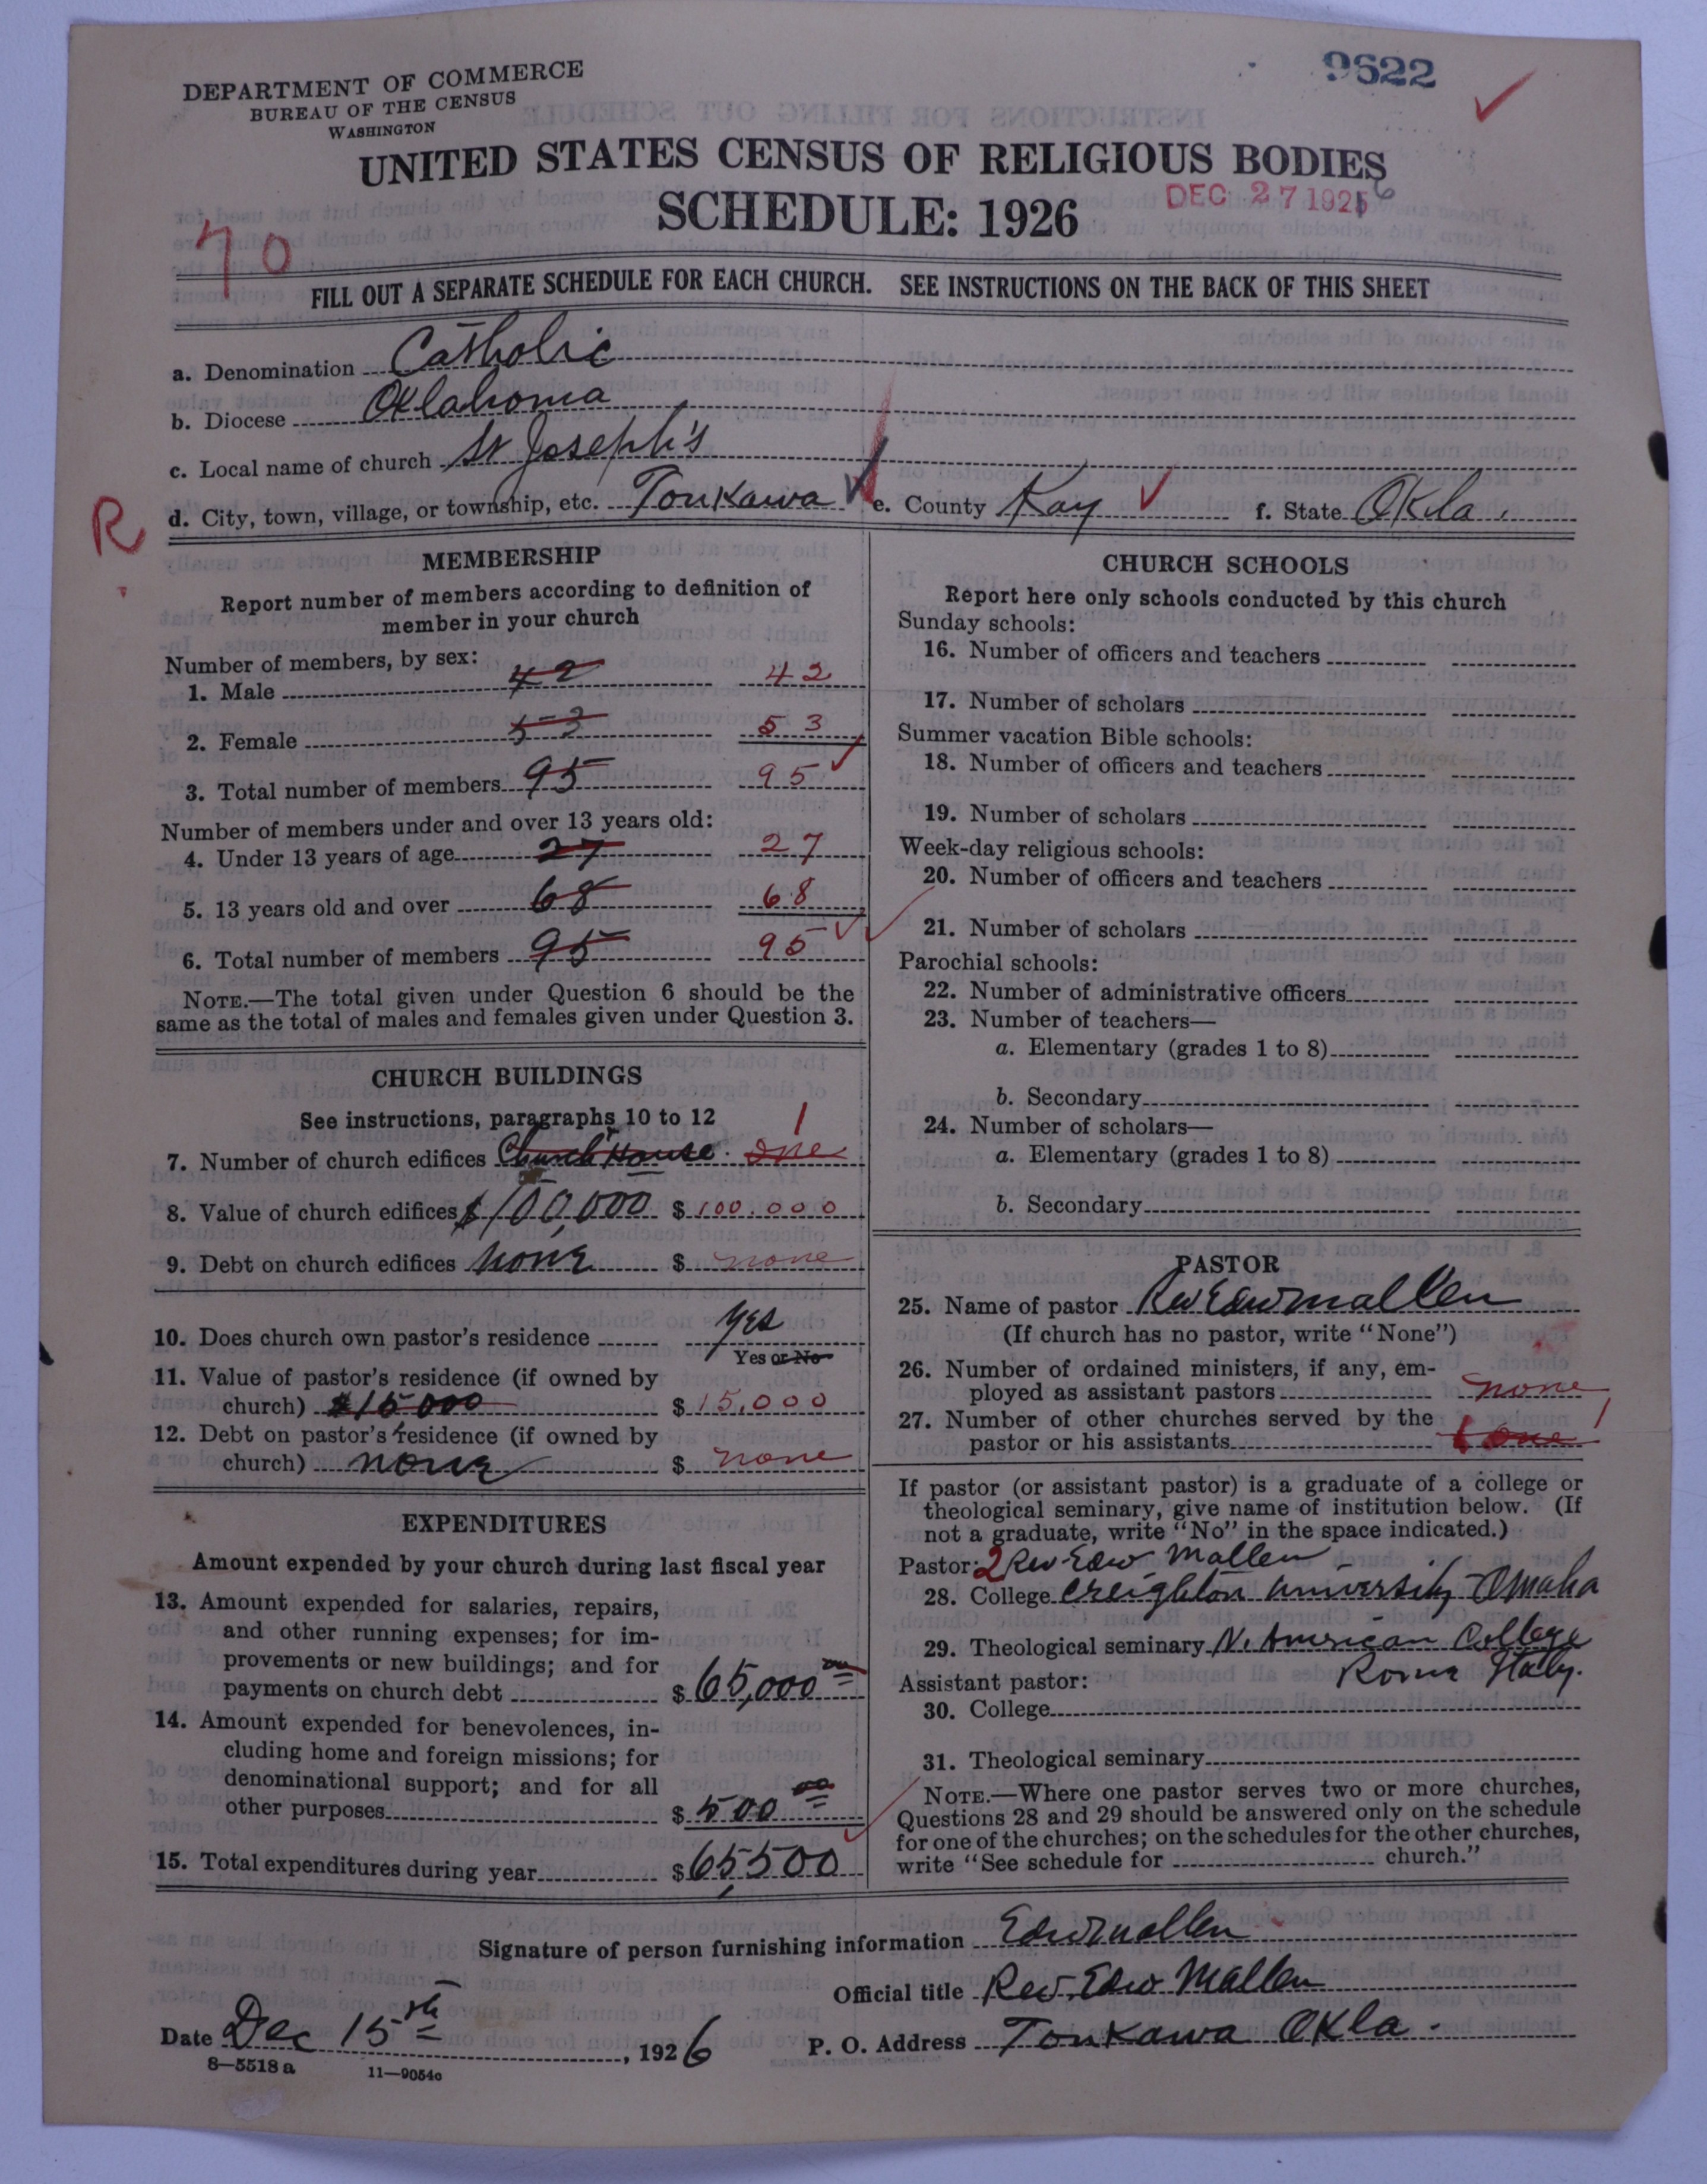 9622
DEPARTMENT OF COMMERCE
BUREAU OF THE CENSUS
WASHINGTON
UNITED STATES CENSUS OF RELIGIOUS BODIES
SCHEDULE: 1926
DEC 27 1926
70
FILL OUT A SEPARATE SCHEDULE FOR EACH CHURCH. SEE INSTRUCTIONS ON THE BACK OF THIS SHEET
a. Denomination Catholic
b. Diocese Oklahoma
c. Local name of church St Joseph's
R
d. City, town, village, or township, etc. Tonkawa e. County Kay f. State Okla.
MEMBERSHIP
Report number of members according to definition of
member in your church
Number of members, by sex:
1. Male 42 42
2. Female 53 53
3. Total number of members 95 95
Number of members under and over 13 years old:
4. Under 13 years of age 27 27
5. 13 years old and over 68 68
6. Total number of members 95 95
NOTE.—The total given under Question 6 should be the
same as the total of males and females given under Question 3.
CHURCH BUILDINGS
See instructions, paragraphs 10 to 12
7. Number of church edifices Church House. one 1
8. Value of church edifices $100,000 $ 100.000
9. Debt on church edifices none $ none
10. Does church own pastor's residence yes
Yes or No
11. Value of pastor's residence (if owned by
church) $15,000 $ 15,000
12. Debt on pastor's residence (if owned by
church) none $ none
EXPENDITURES
Amount expended by your church during last fiscal year
13. Amount expended for salaries, repairs,
and other running expenses; for im-
provements or new buildings; and for
payments on church debt $ 65,000 00
14. Amount expended for benevolences, in-
cluding home and foreign missions; for
denominational support; and for all
other purposes $ 500 00
15. Total expenditures during year $ 65,500
CHURCH SCHOOLS
Report here only schools conducted by this church
Sunday schools:
16. Number of officers and teachers
17. Number of scholars
Summer vacation Bible schools:
18. Number of officers and teachers
19. Number of scholars
Week-day religious schools:
20. Number of officers and teachers
21. Number of scholars
Parochial schools:
22. Number of administrative officers
23. Number of teachers—
a. Elementary (grades 1 to 8)
b. Secondary
24. Number of scholars—
a. Elementary (grades 1 to 8)
b. Secondary
PASTOR
25. Name of pastor Rev Edw Mallen
(If church has no pastor, write "None")
26. Number of ordained ministers, if any, em-
ployed as assistant pastors none
27. Number of other churches served by the
pastor or his assistants one 1
If pastor (or assistant pastor) is a graduate of a college or
theological seminary, give name of institution below. (If
not a graduate, write "No" in the space indicated.)
Pastor: 2 Rev Edw Mallen
28. College Creighton University Omaha
29. Theological seminary N. American College
Rome Italy.
Assistant pastor:
30. College
31. Theological seminary
NOTE.—Where one pastor serves two or more churches,
Questions 28 and 29 should be answered only on the schedule
for one of the churches; on the schedules for the other churches,
write "See schedule for church."
Signature of person furnishing information Edw Mallen
Official title Rev. Edw Mallen
Date Dec 15th, 1926 P. O. Address Tonkawa Okla.
8—5518 a 11—9054c